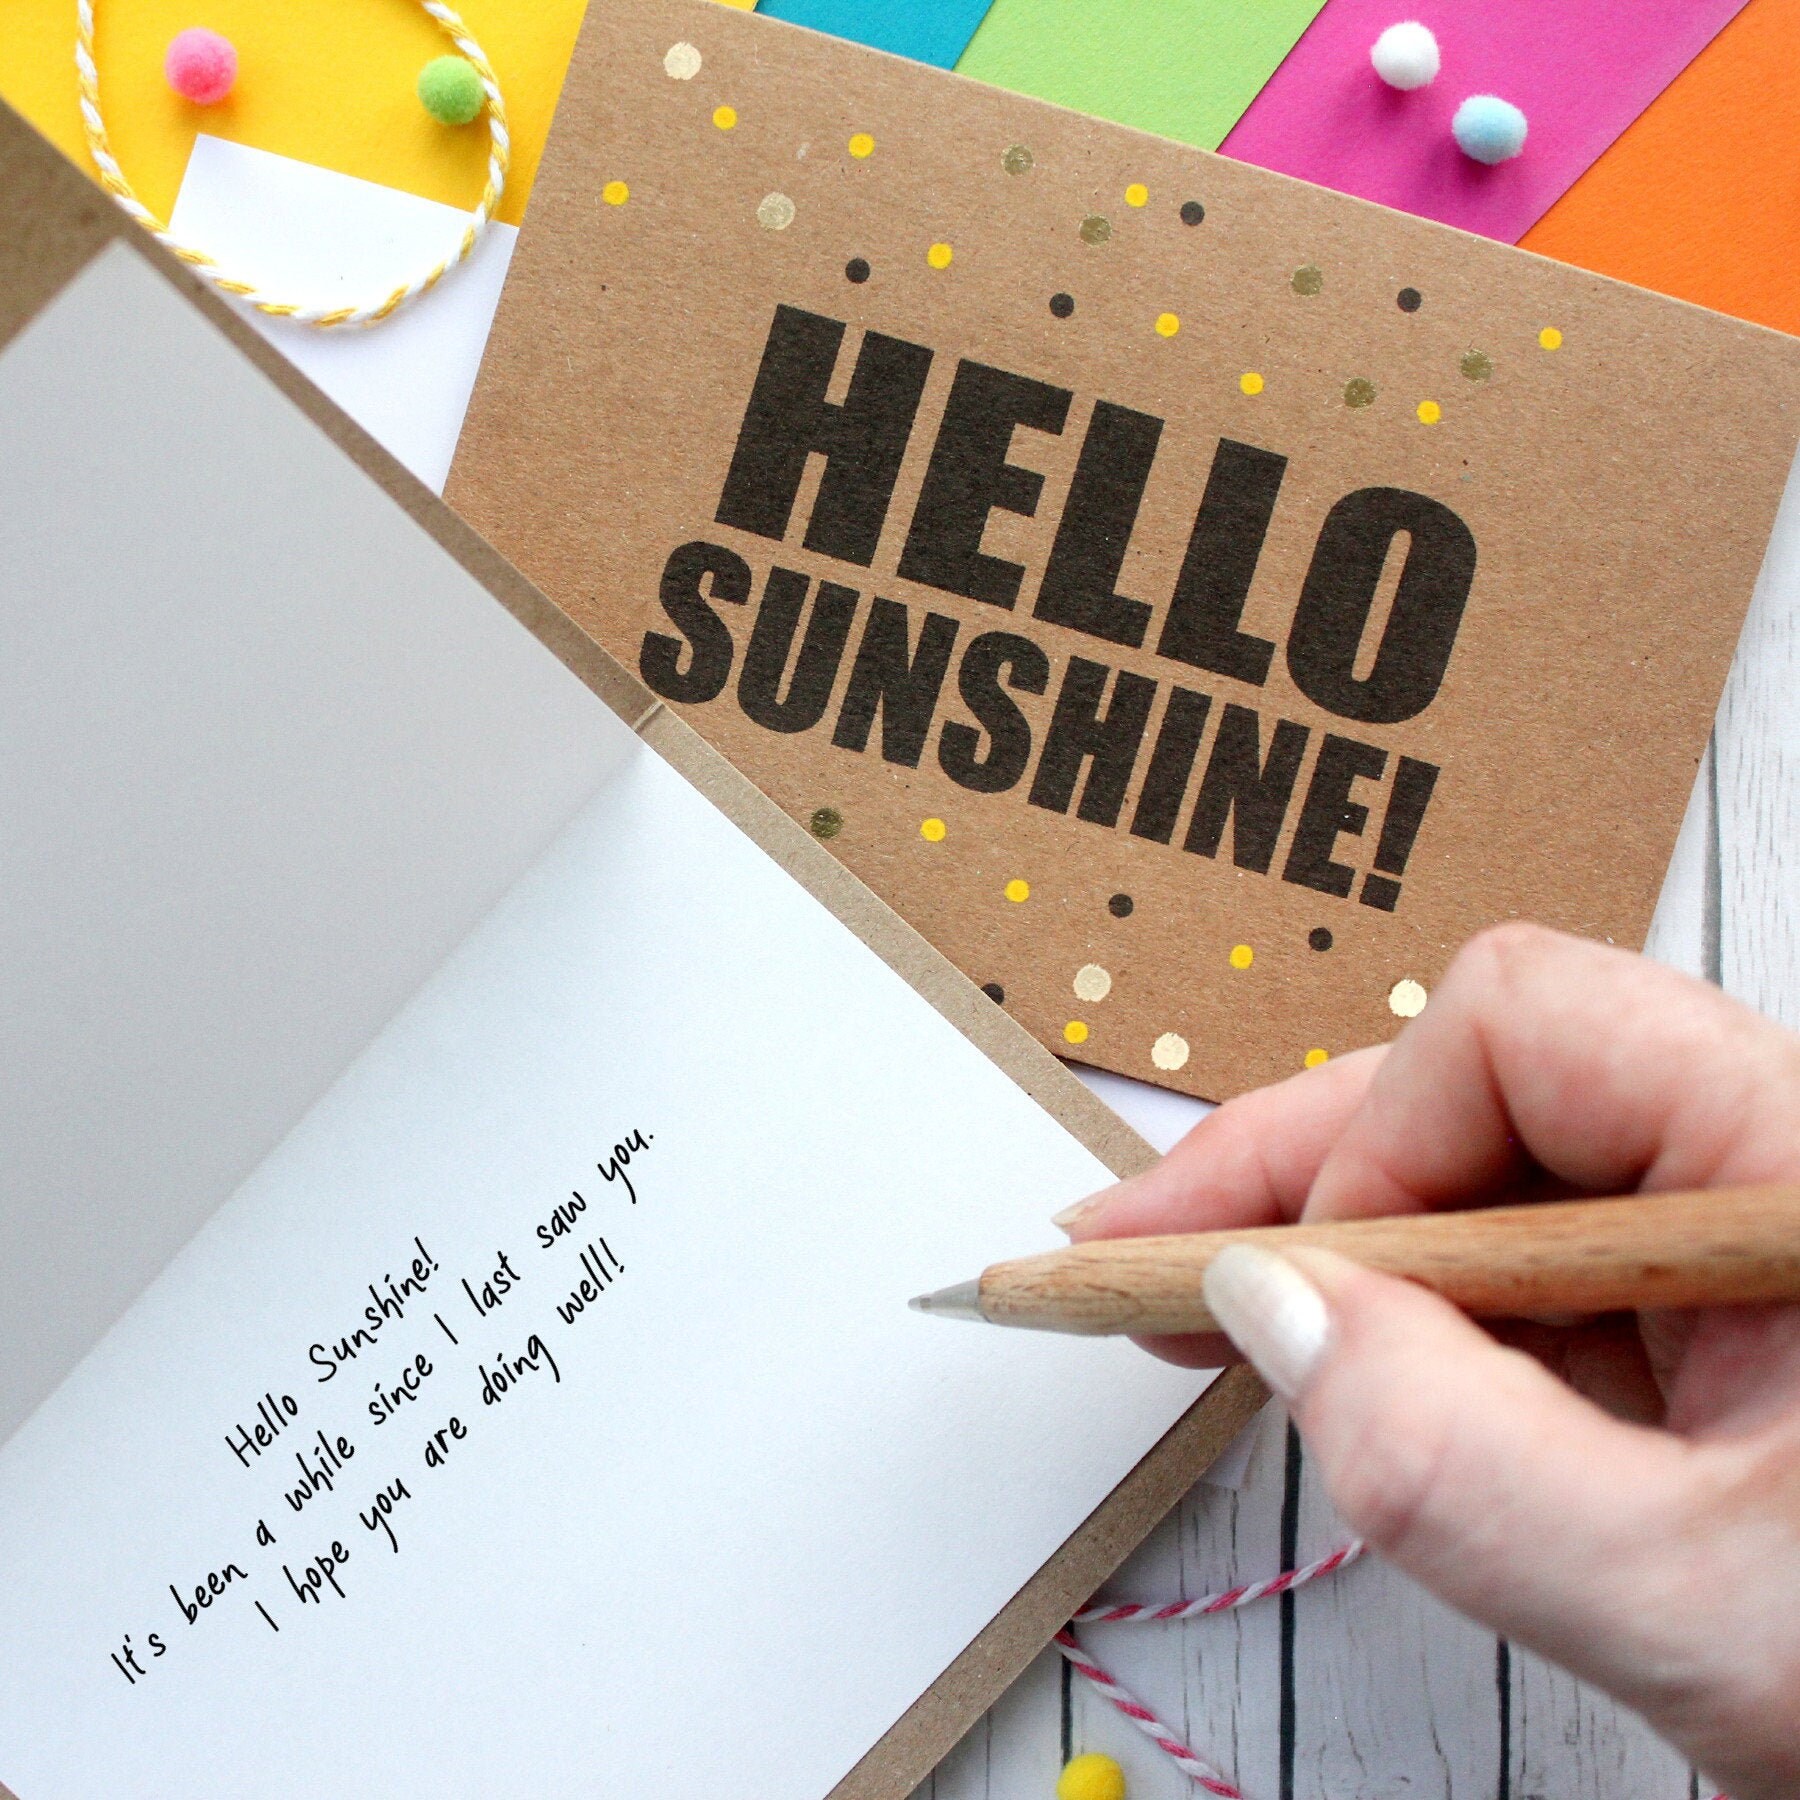 HELLO
SUNSHINE!
Hello Sunshine!
It's been a while since I last saw you.
I hope you are doing well!